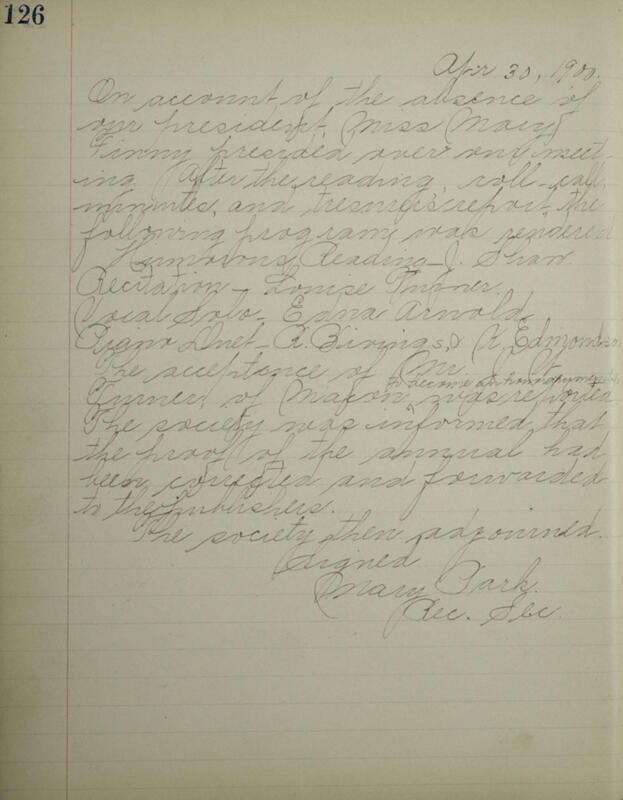 126
Apr 30, 1900.
On account of the absence of
our president, Miss Mary
Finny presided over our meet-
ing. After the reading, roll-call,
minutes, and tresurer's report, the
following program was rendered
Humorous Reading - J. Shaw.
Recitation - Louise Turner.
Vocal Solo - Edna Arnold.
Piano Duet - R. Bivings, & K. Edmondson
The acceptence of Mr.
to become an honorary member
Turner, of Macon was reported
The society was informed that
the proof of the annual had
been corrected and forwarded
to the publishers.
The society then adjourned.
Signed
Mary Park.
Rec. Sec.